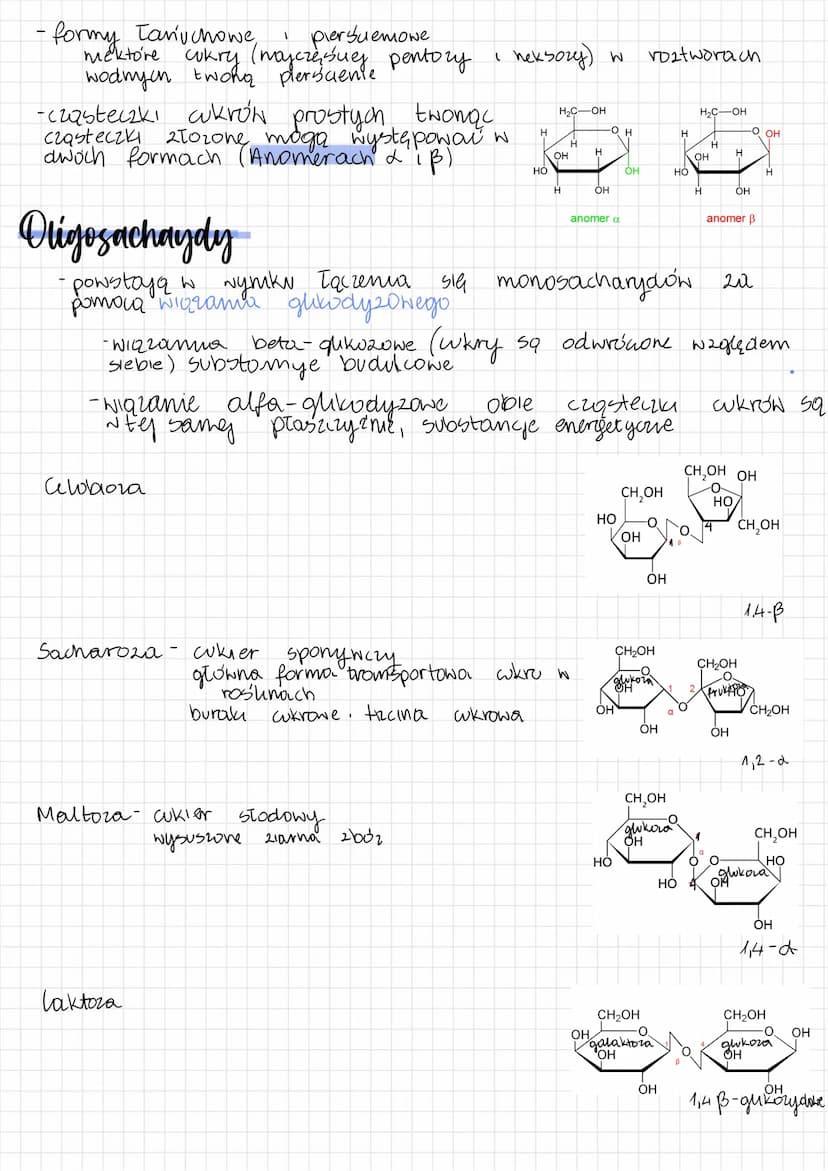 - formy łańcuchowe i pierścieniowe
niektóre cukry (najczęściej pentozy i heksozy) w roztworach
wodnych tworzą pierścienie
- cząsteczki cukrów prostych tworząc
cząsteczki złożone mogą występować w
dwóch formach (Anomerach α i β)
H₂C—OH
H
O
H
H
OH
H
HO
OH
H
OH
anomer α
H₂C—OH
H
O
OH
H
OH
H
HO
H
H
OH
anomer β
Oligosachaydy
- powstają w wyniku łączenia się monosacharydów za
pomocą wiązania glikodyzowego
- wiązanina beta-glikozowe (cukry są odwrócone względem
siebie) substancje budulcowe
- wiązanie alfa-glikodyzowe obie cząsteczki cukrów są
w tej samej płaszczyźnie, substancje energetyczne
Celobioza
CH₂OH
OH
O
HO
CH₂OH
4
CH₂OH
HO
O
OH
O
1
β
OH
1,4-β
Sacharoza - cukier spożywczy
główna forma transportowa cukru w
roślinach
buraki cukrowe, trzcina cukrowa
CH₂OH
O
glukoza
OH
OH
OH
1
α
O
2
CH₂OH
O
fruktoza
CH₂OH
OH
1,2-α
Maltoza - cukier słodowy
wysuszone ziarna zbóż
CH₂OH
O
glukoza
OH
HO
HO
1
α
O
4
O
CH₂OH
HO
glukoza
OH
OH
1,4-α
Laktoza
CH₂OH
OH
O
galaktoza
OH
OH
1
β
O
4
CH₂OH
O
OH
glukoza
OH
OH
1,4 β-glikozydowe